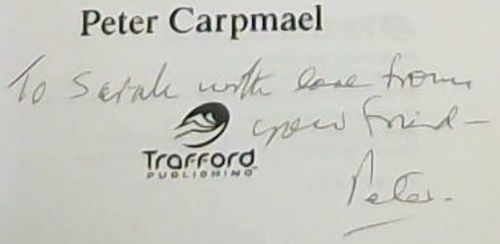 Peter Carpmael
To Sarah with love from
your friend -
Trafford
PUBLISHING™
Peter.